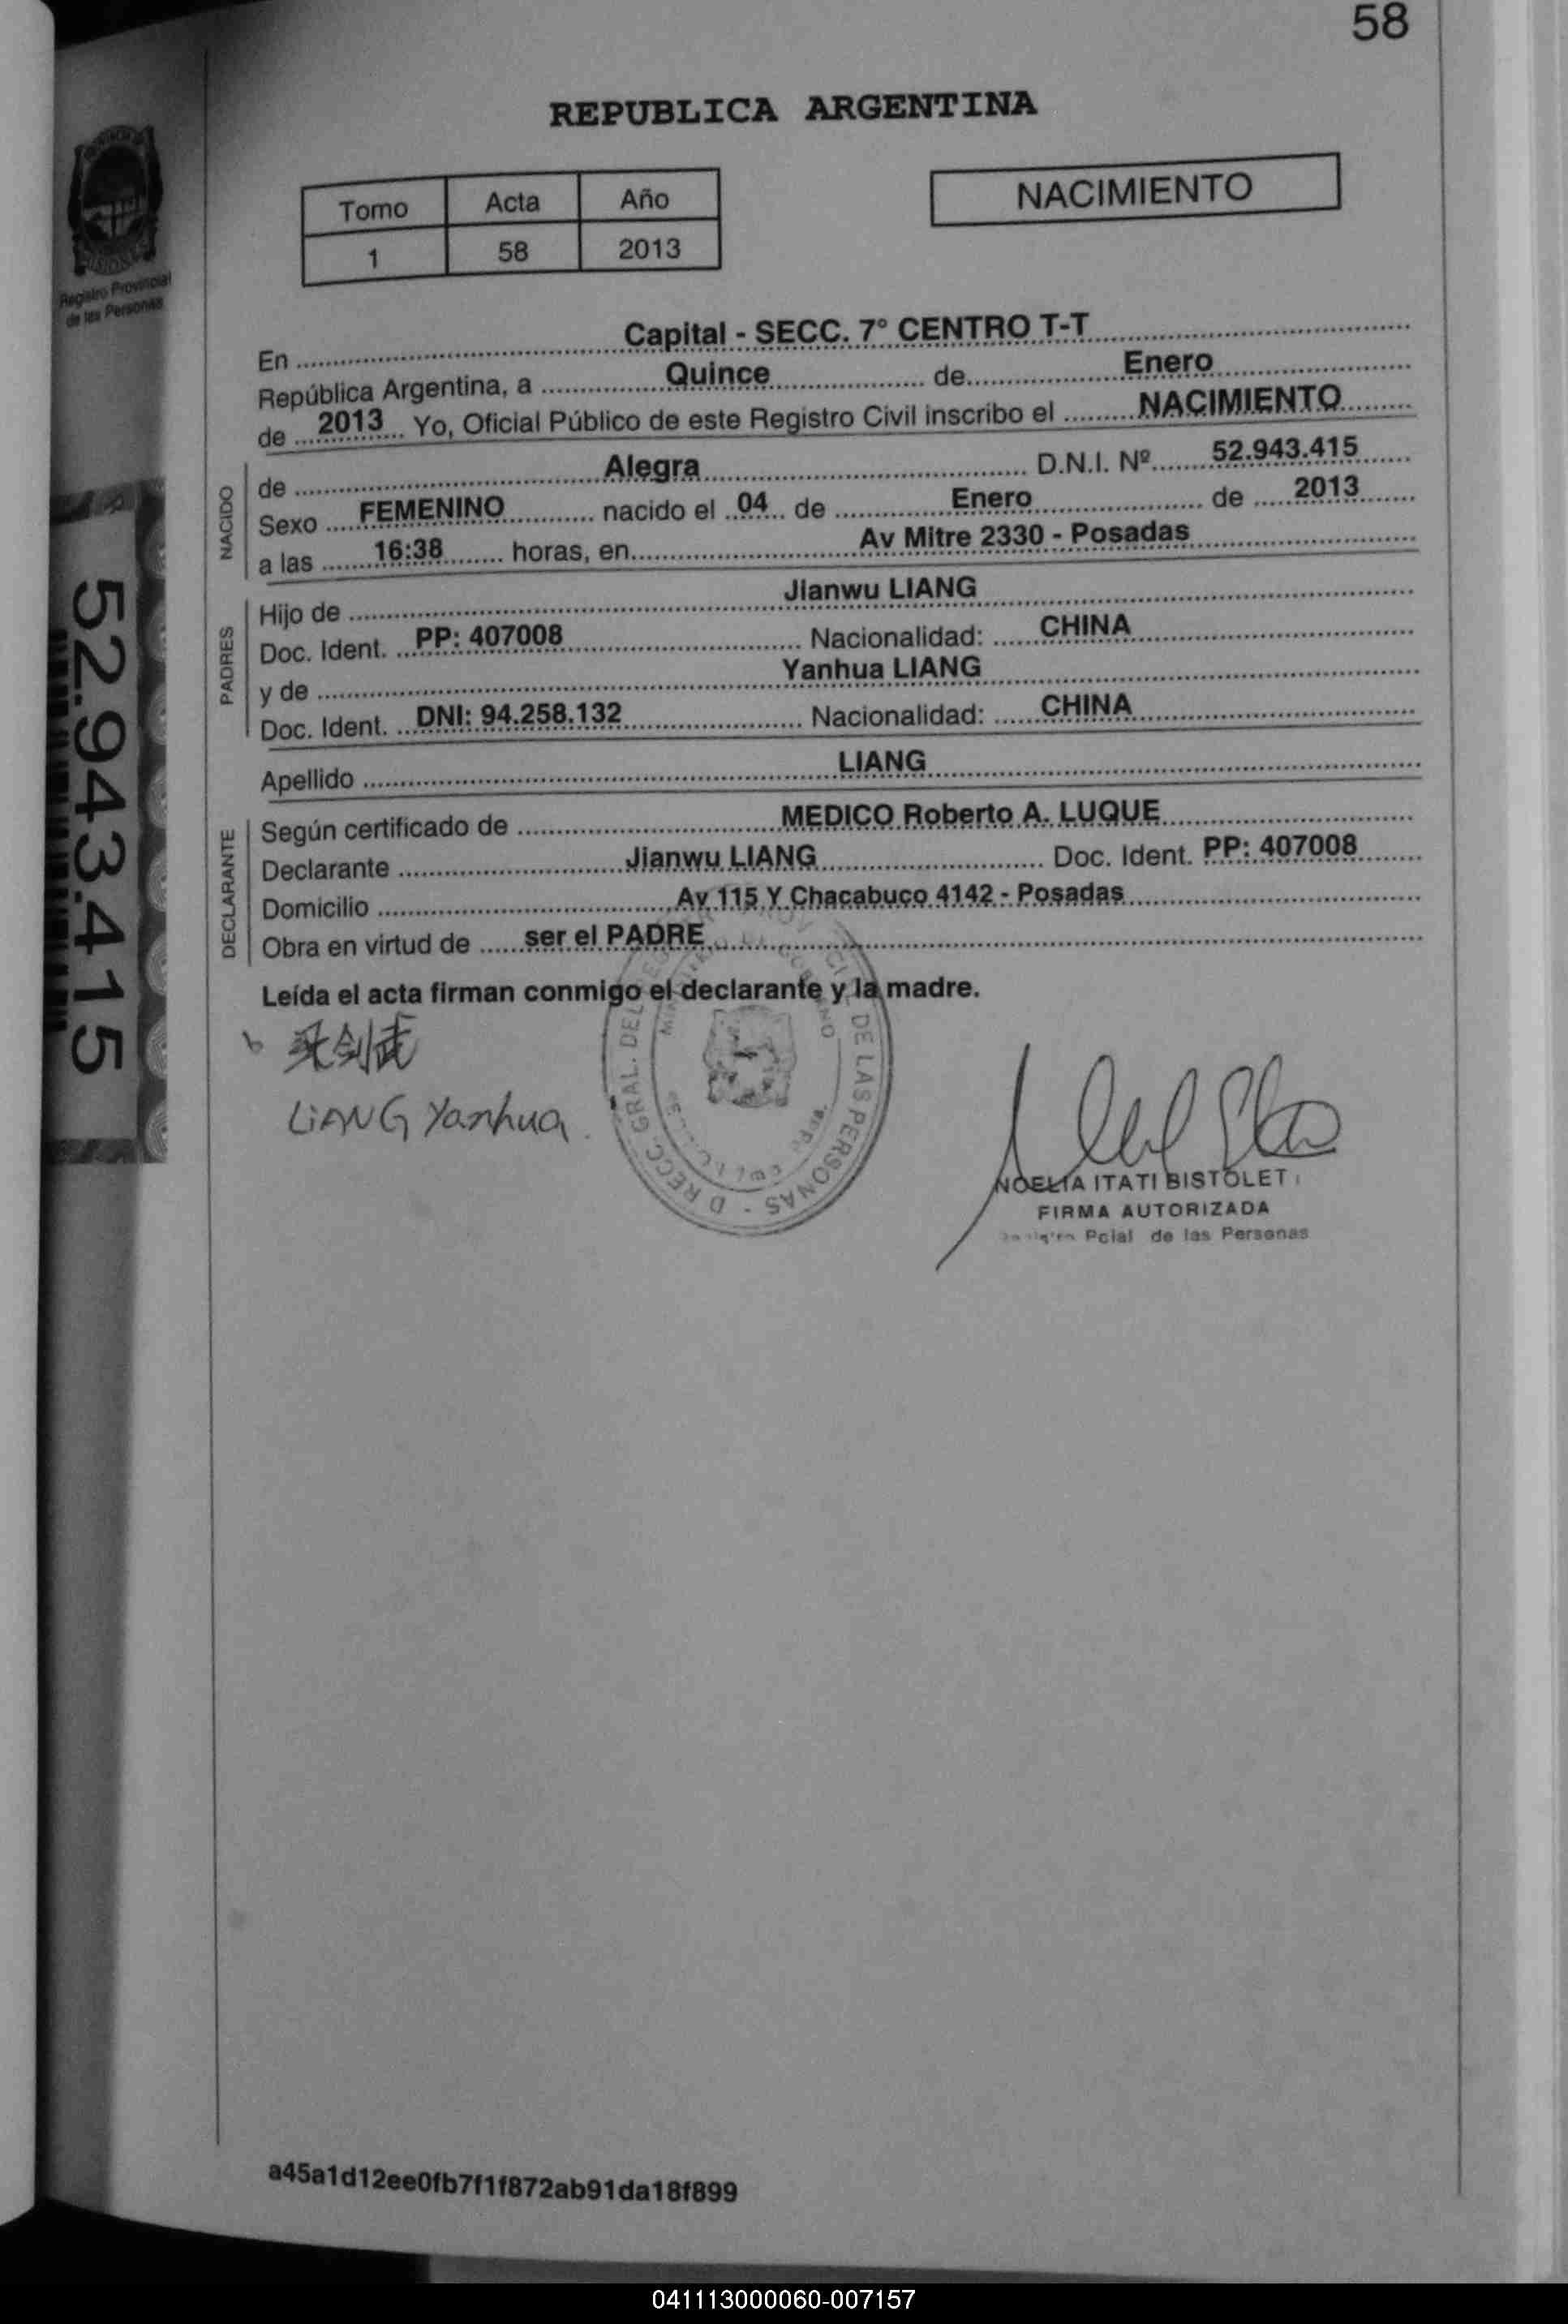 58
REPUBLICA ARGENTINA
Tomo Acta Año
1 58 2013
NACIMIENTO
Registro Provincial
de las Personas
En Capital - SECC. 7° CENTRO T-T
República Argentina, a Quince de Enero
de 2013 Yo, Oficial Público de este Registro Civil inscribo el NACIMIENTO
NACIDO
de Alegra D.N.I. Nº 52.943.415
Sexo FEMENINO nacido el 04 de Enero de 2013
a las 16:38 horas, en Av Mitre 2330 - Posadas
PADRES
Hijo de Jianwu LIANG
Doc. Ident. PP: 407008 Nacionalidad: CHINA
y de Yanhua LIANG
Doc. Ident. DNI: 94.258.132 Nacionalidad: CHINA
Apellido LIANG
DECLARANTE
Según certificado de MEDICO Roberto A. LUQUE
Declarante Jianwu LIANG Doc. Ident. PP: 407008
Domicilio Av 115 Y Chacabuco 4142 - Posadas
Obra en virtud de ser el PADRE
Leída el acta firman conmigo el declarante y la madre.
52.943.415
剑武
LiANG Yanhua
GRAL. DEL DE LAS PERSONAS
NOELIA ITATI BISTOLET
FIRMA AUTORIZADA
Pcial de las Personas
a45a1d12ee0fb7f1f872ab91da18f899
041113000060-007157